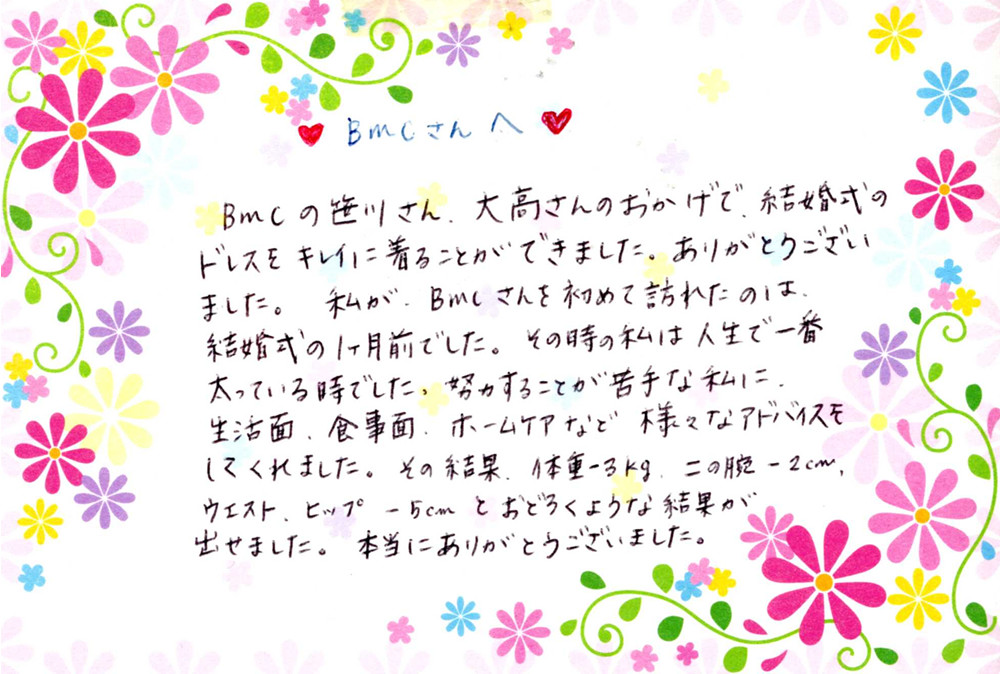 BMCさんへ
BMCの笹川さん、大高さんのおかげで、結婚式の
ドレスをキレイに着ることができました。ありがとうござい
ました。 私が、BMCさんを初めて訪れたのは、
結婚式の1ヶ月前でした。その時の私は人生で一番
太っている時でした。努力することが苦手な私に、
生活面、食事面、ホームケアなど様々なアドバイスを
してくれました。その結果、体重-3kg、二の腕-2cm、
ウエスト、ヒップ -5cmとおどろくような結果が
出せました。本当にありがとうございました。